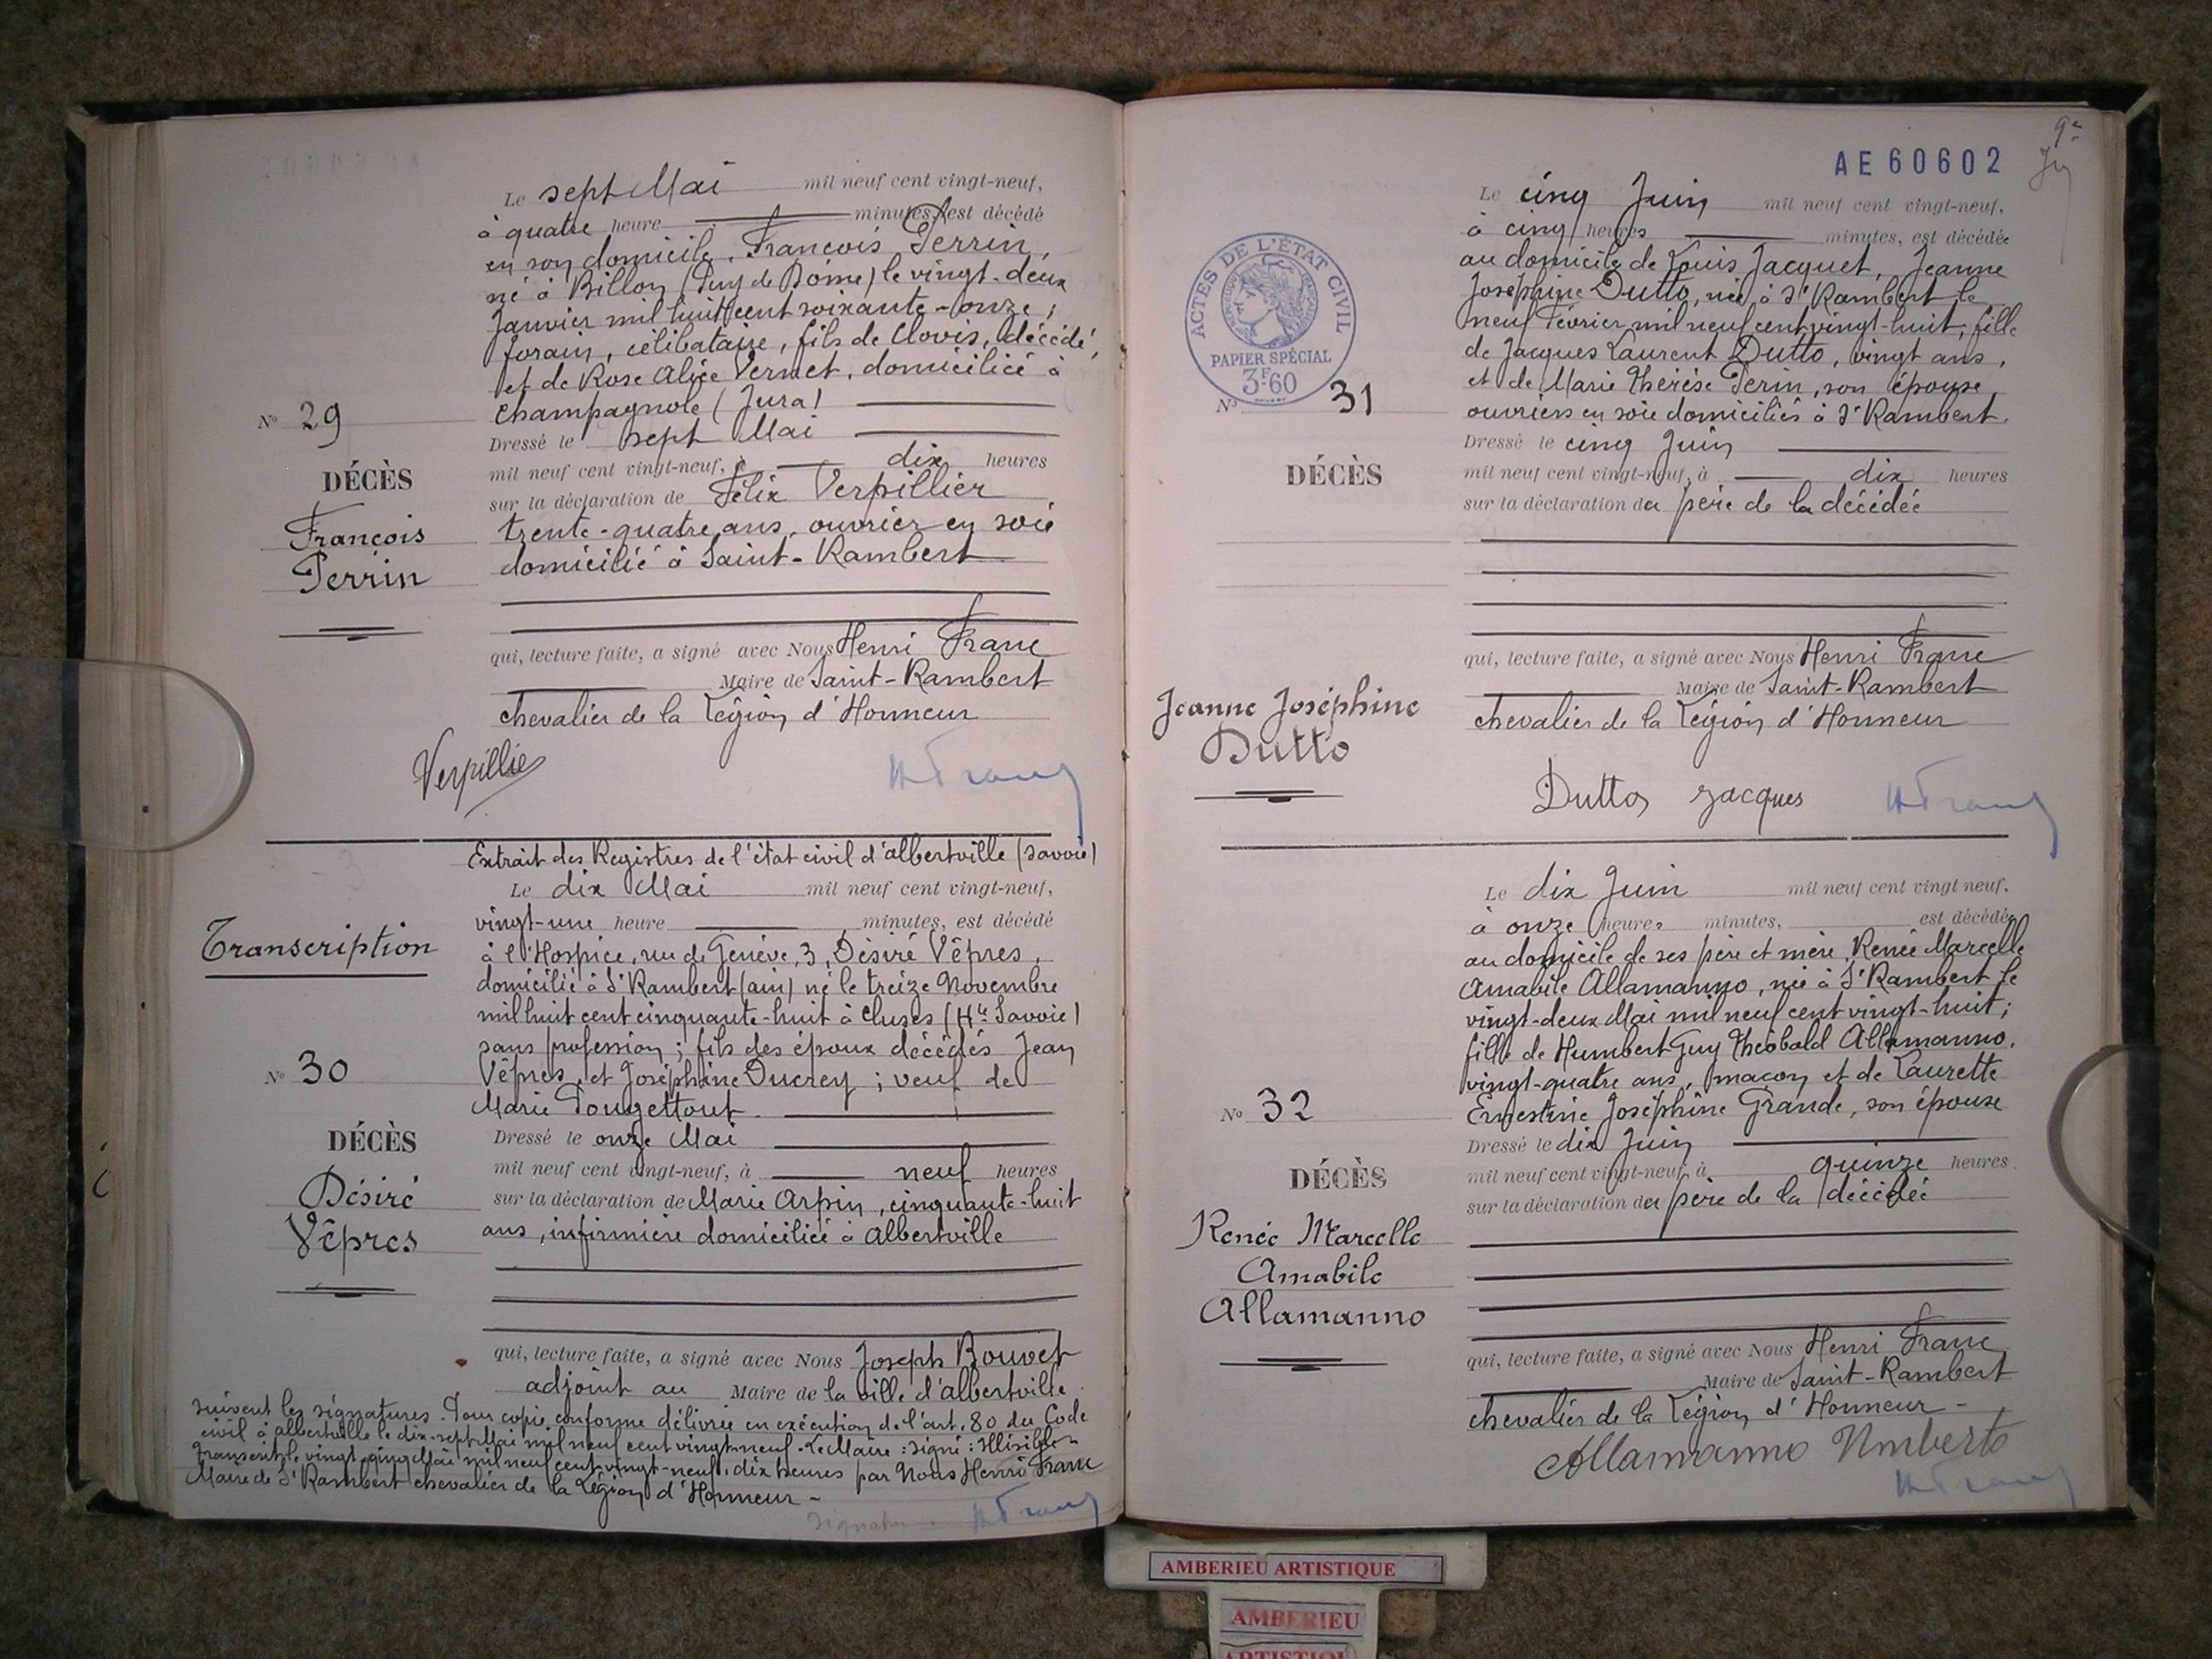 Le sept Mai mil neuf cent vingt-neuf,
à quatre heure minutes, est décédé
en son domicile, François Perrin,
né à Billom (Puy de Dôme) le vingt-deux
Janvier mil huit cent soixante-onze,
forain, célibataire, fils de Clovis, décédé,
et de Rose Alice Vernet, domiciliée à
Champagnole (Jura)
Nº 29
DÉCÈS
François
Perrin
Dressé le sept Mai
mil neuf cent vingt-neuf, à dix heures
sur la déclaration de Félix Verpillier
trente-quatre ans, ouvrier en soie
domicilié à Saint-Rambert
qui, lecture faite, a signé avec Nous Henri Franc
Maire de Saint-Rambert
chevalier de la Légion d'Honneur
Verpillier
H Franc
Extrait des Registres de l'état civil d'albertville (Savoie)
Transcription
Le dix Mai mil neuf cent vingt-neuf,
vingt-une heure minutes, est décédé
à l'Hospice, rue de Genève, 3, Désiré Vêpres,
domicilié à St Rambert (ain) né le treize Novembre
mil huit cent cinquante-huit à Cluses (Hte Savoie)
sans profession ; fils des époux décédés Jean
Vêpres, et Joséphine Ducrey ; veuf de
Marie Pougettout.
Nº 30
DÉCÈS
Désiré
Vêpres
Dressé le onze Mai
mil neuf cent vingt-neuf, à neuf heures
sur la déclaration de Marie Arpin, cinquante-huit
ans, infirmière domiciliée à albertville
qui, lecture faite, a signé avec Nous Joseph Bouvet
adjoint au Maire de la ville d'albertville
suivent les signatures. Pour copie conforme délivrée en exécution de l'art. 80 du Code
civil à albertville le dix-sept Mai mil neuf cent vingt-neuf. Le Maire : signé : Illisible -
Transcrit le vingt-cinq Mai mil neuf cent vingt-neuf, dix heures par Nous Henri Franc
Maire de St Rambert chevalier de la Légion d'Honneur -
H Franc
9e
AE 60602
ACTES DE L'ÉTAT CIVIL
PAPIER SPÉCIAL
3F.60
Le cinq Juin mil neuf cent vingt-neuf,
à cinq heures minutes, est décédée
au domicile de Louis Jacquet, Jeanne
Joséphine Dutto, née à St Rambert le
neuf Février mil neuf cent vingt-huit, fille
de Jacques Laurent Dutto, vingt ans,
et de Marie Thérèse Perin, son épouse
ouvriers en soie domiciliés à St Rambert.
Nº 31
DÉCÈS
Jeanne Joséphine
Dutto
Dressé le cinq Juin
mil neuf cent vingt-neuf, à dix heures
sur la déclaration du père de la décédée
qui, lecture faite, a signé avec Nous Henri Franc
Maire de Saint-Rambert
chevalier de la Légion d'Honneur
Dutto Jacques
H Franc
Le dix Juin mil neuf cent vingt neuf,
à onze heures minutes, est décédée
au domicile de ses père et mère, Renée Marcelle
Amabile Allamanno, née à St Rambert le
vingt-deux Mai mil neuf cent vingt-huit ;
fille de Humbert Guy Théobald Allamanno,
vingt-quatre ans, maçon et de Laurette
Ernestine Joséphine Grande, son épouse
Nº 32
DÉCÈS
Renée Marcelle
Amabile
Allamanno
Dressé le dix Juin
mil neuf cent vingt-neuf, à quinze heures
sur la déclaration du père de la décédée
qui, lecture faite, a signé avec Nous Henri Franc
Maire de Saint-Rambert
chevalier de la Légion d'Honneur -
Allamanno Umberto
H Franc
AMBERIEU ARTISTIQUE
AMBERIEU
ARTISTIQUE